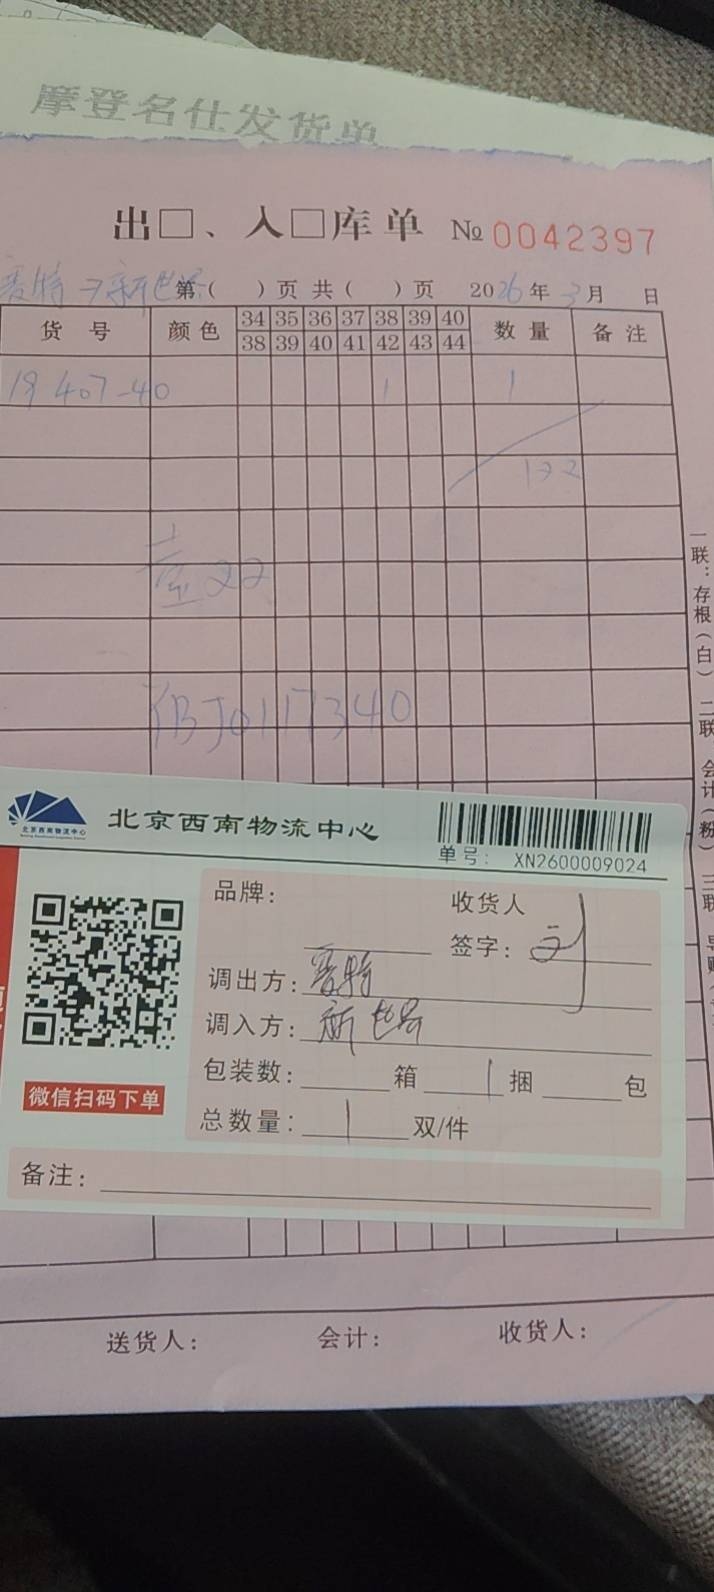 摩登名仕发货单
出□、入□库单 № 0042397
赛特→新世界 第（ ）页 共（ ）页 2026年3月 日
货号 颜色 34 35 36 37 38 39 40 数量 备注
38 39 40 41 42 43 44
19407-40 1 1
1→2
22
BJ0117340
一联：存根（白） 二联 会计（粉） 三联
北京西南物流中心
北京西南物流中心
单号： XN2600009024
品牌： 收货人
签字：刘
调出方：赛特
调入方：新世界
包装数： 箱 1 捆 包
微信扫码下单
总数量：1 双/件
备注：
送货人： 会计： 收货人：